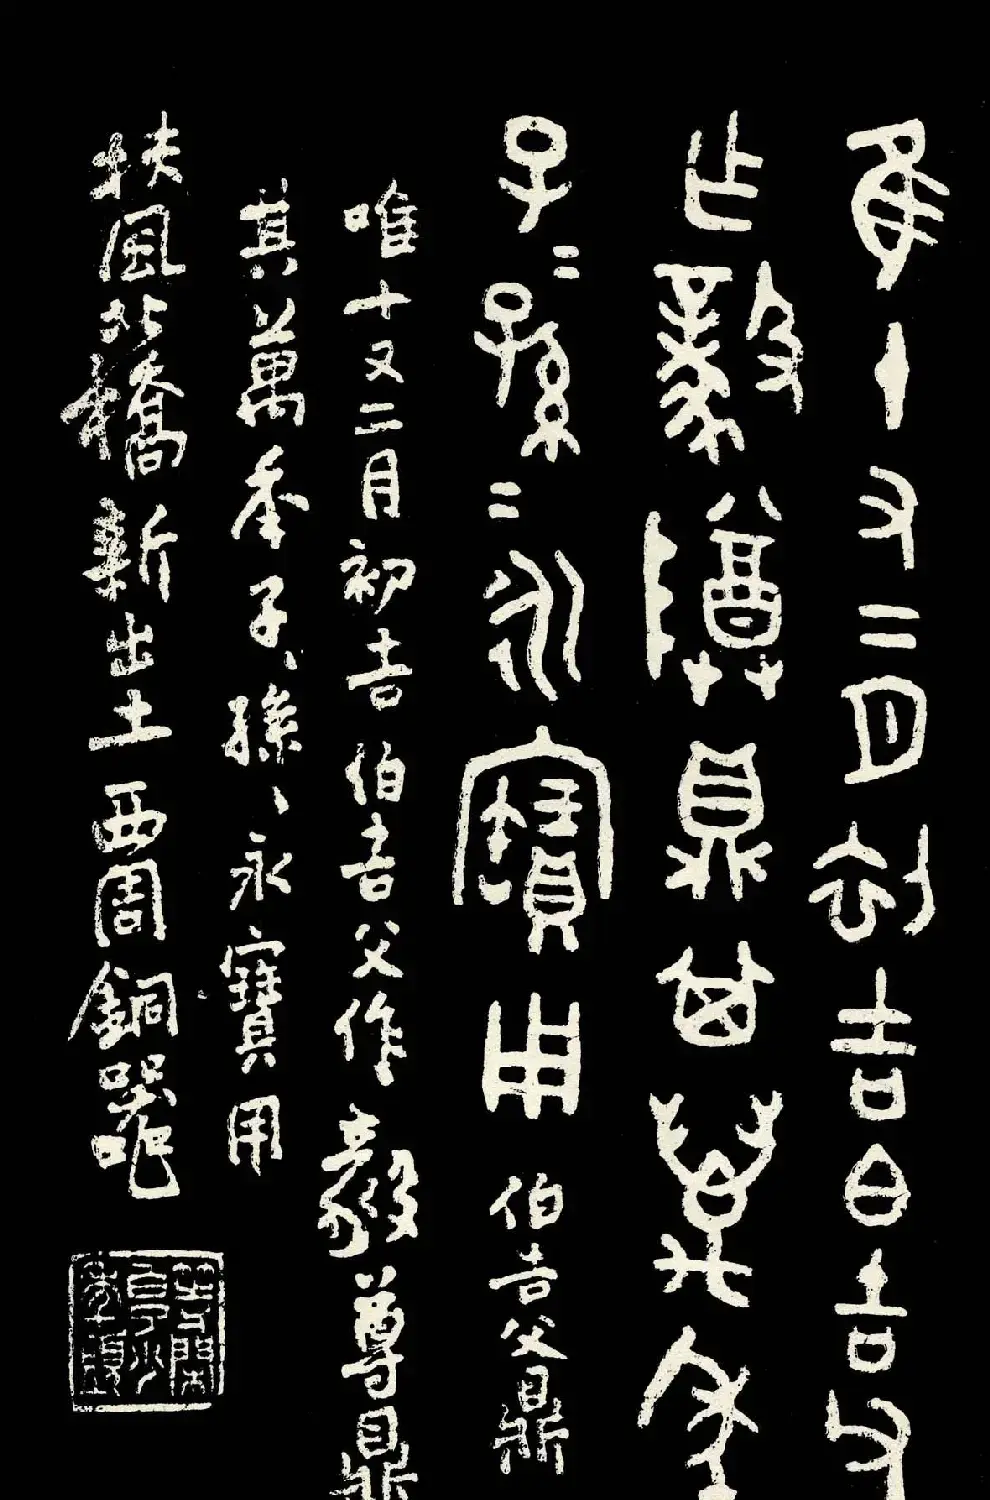 隹十又二月初吉白吉父
乍毅尊鼎其萬年
子二孫二永寶用 伯吉父鼎
唯十又二月初吉伯吉父作毅尊鼎
其萬年子〻孫〻永寶用
扶風北橋新出土西周銅器